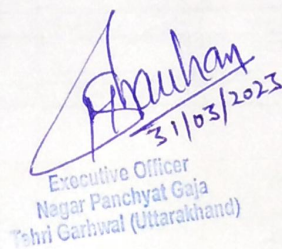 Chauhan
31/03/2023
Executive Officer
Nagar Panchyat Gaja
Tehri Garhwal (Uttarakhand)